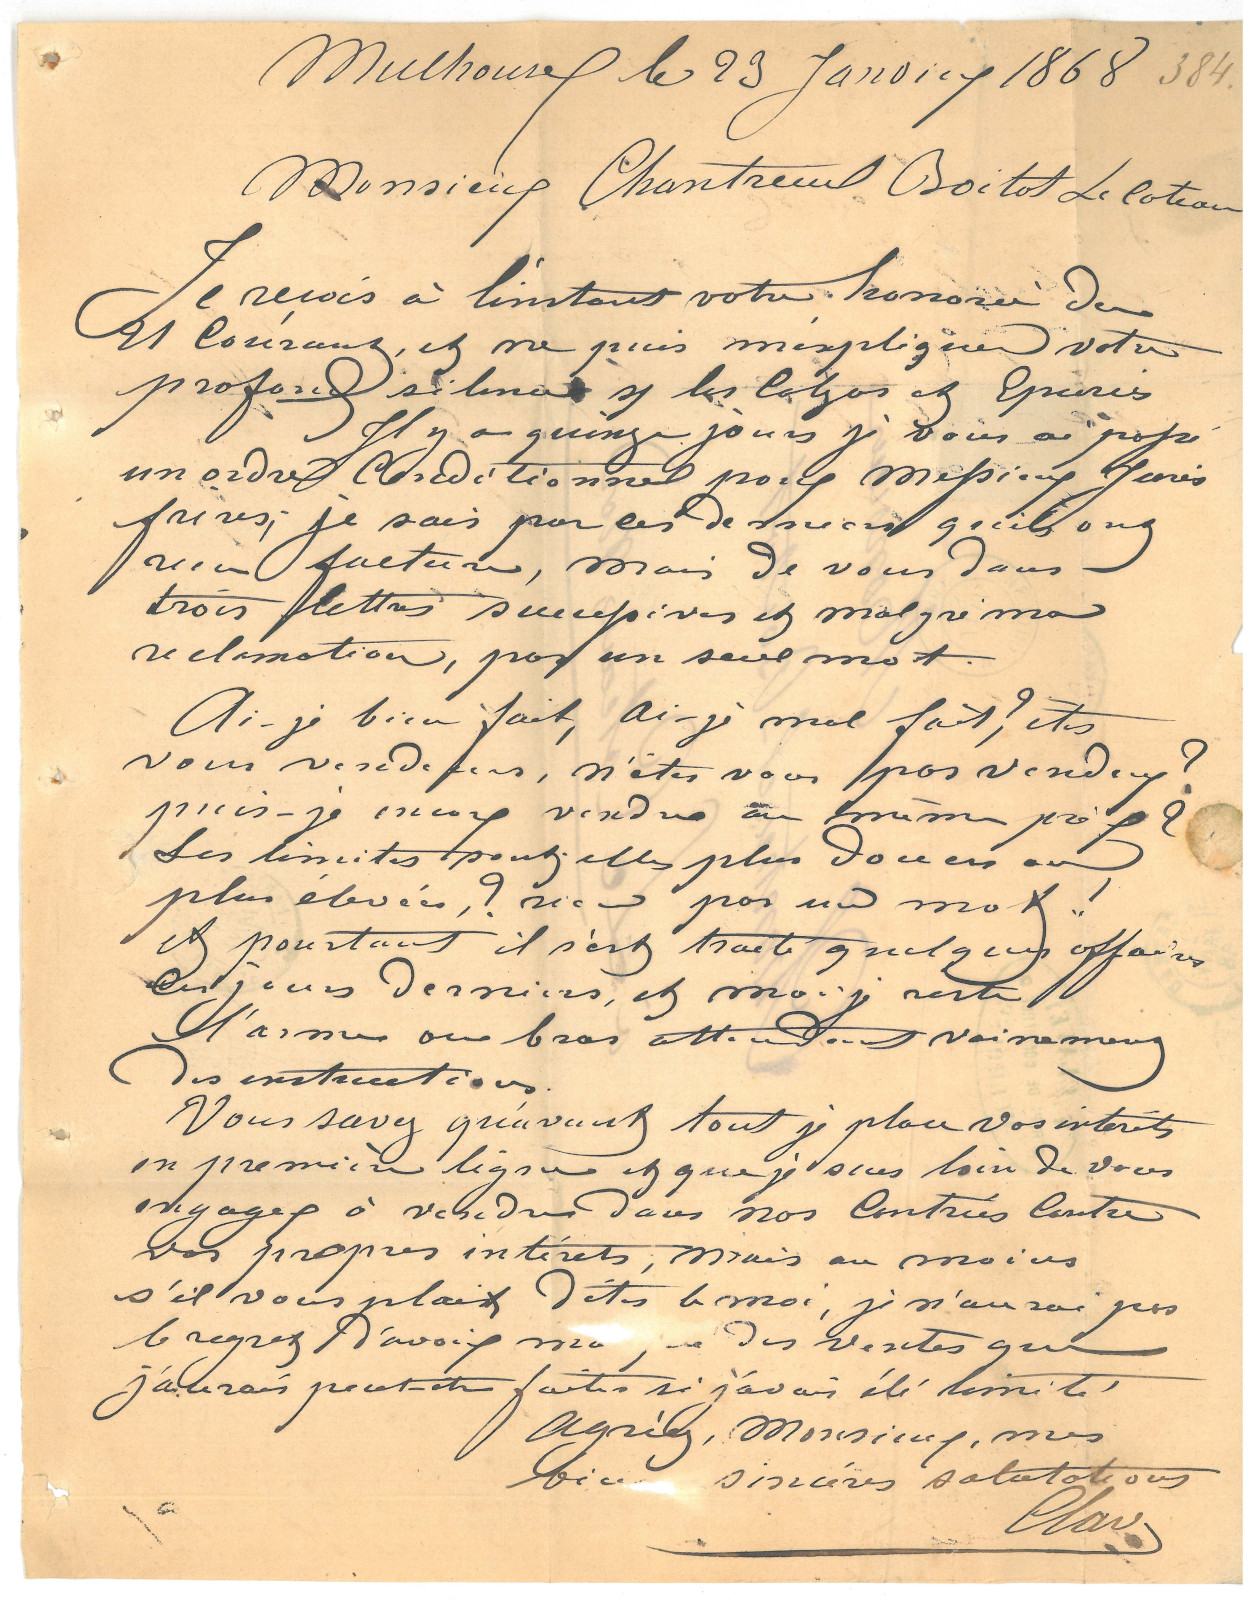 Mulhouse le 23 Janvier 1868 384.
Monsieur Chantreuil Boitot Le Coteau
Je reçois à l'instant votre honorée du
21 Courant, et ne puis m'expliquer votre
profond silence sy les Calzas et Epurés
Il y a quinze jours je vous ai posé
un ordre Conditionnel pour Messieurs
frères, je sais par ces derniers qu'ils ont
recu facture, mais de vous dans
trois lettres successives et malgré ma
reclamation, pas un seul mot.
Ai-je bien fait, Ai-je mal fait, ? êtes
vous vendeurs, n'êtes vous pas vendeur ?
puis-je encore vendre au même prix ?
Les limites sont, elles plus douces ou
plus élevées, ? rien pas un mot !
et pourtant il s'est traité quelques affaires
ces jours derniers, et moi je reste
l'arme au bras attendant vainement
des instructions.
Vous savez qu'avant tout je place vos intérêts
en première ligne et que je suis loin de vous
engager à vendre dans nos Contrées Contre
vos propres intérêts, mais au moins
s'il vous plait dites le moi, je n'aurai pas
le regret d'avoir des ventes que
j'aurais peut-être faites si j'avais été limité
Agréez, Monsieur, mes
bien sincères salutations